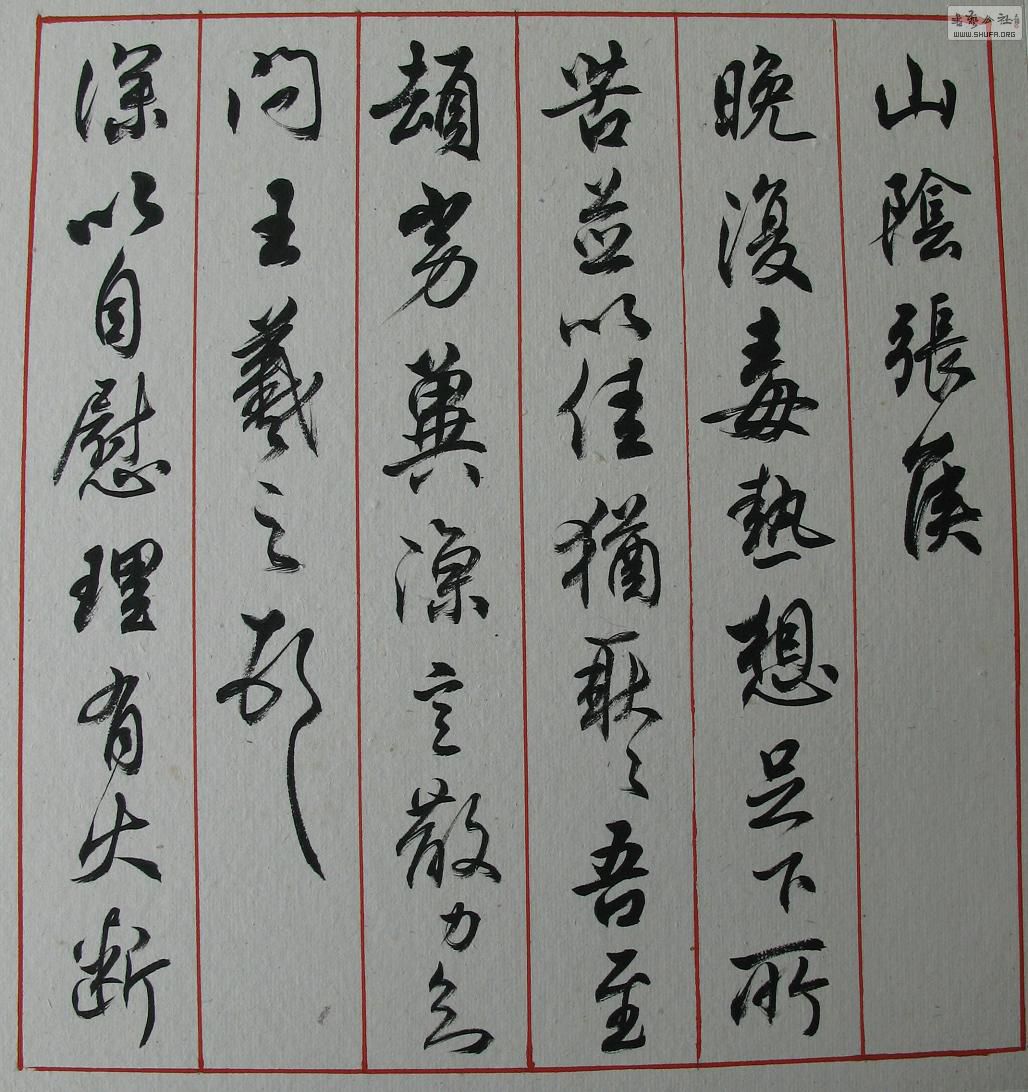 山陰張侯
晚復毒熱想足下所
苦並以佳猶耿〻吾至
頓劣冀涼言散力知
問王羲之頓首
深以自慰理有大斷
書藝公社
WWW.SHUFA.ORG